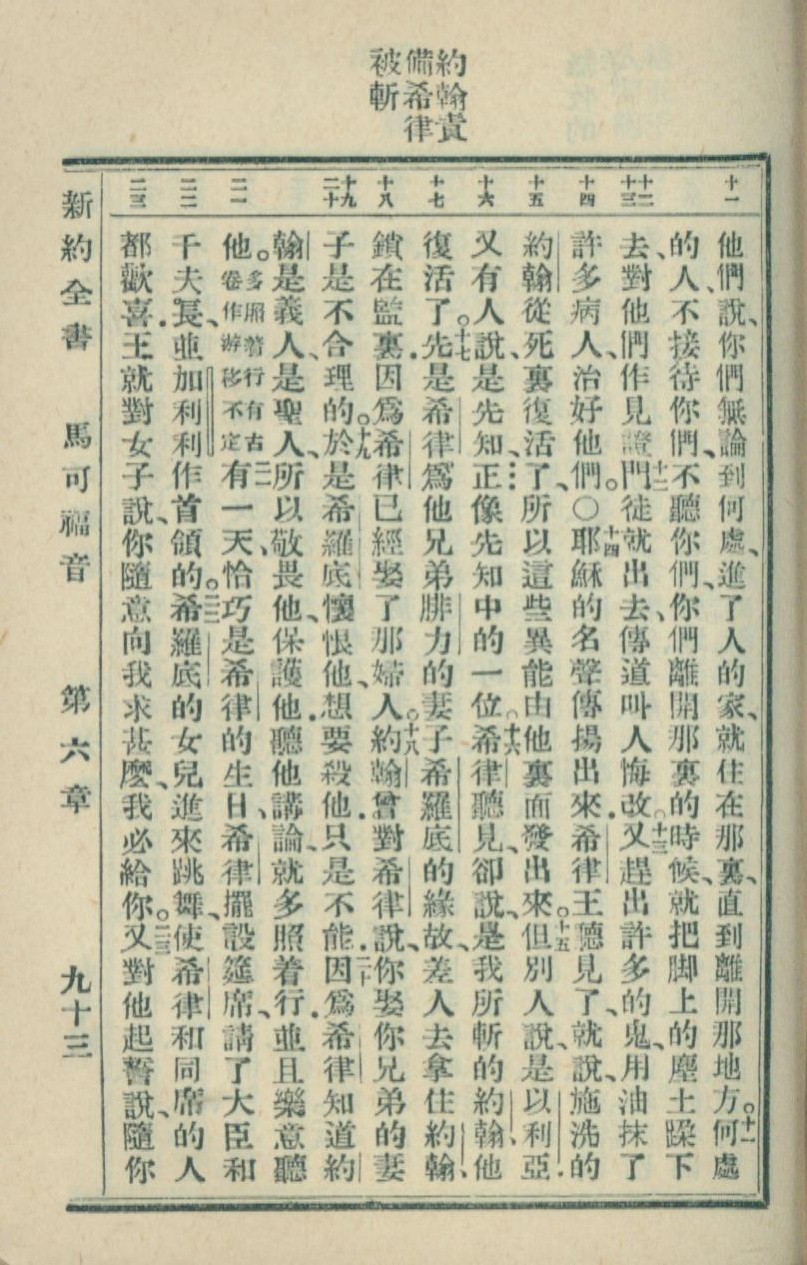 約翰責
備希律
被斬
十一
十二
十三
十四
十五
十六
十七
十八
十九
二十
二一
二二
二三
他們說、你們無論到何處、進了人的家、就住在那裏、直到離開那地方。十一何處
的人、不接待你們、不聽你們、你們離開那裏的時候、就把脚上的塵土蹂下
去、對他們作見證。十二門徒就出去、傳道叫人悔改。十三又趕出許多的鬼、用油抹了
許多病人、治好他們。○十四耶穌的名聲傳揚出來．希律王聽見了、就說、施洗的
約翰從死裏復活了、所以這些異能由他裏面發出來。十五但別人說、是以利亞．
又有人說、是先知、正像先知中的一位。十六希律聽見、卻說、是我所斬的約翰、他
復活了。十七先是希律爲他兄弟腓力的妻子希羅底的緣故、差人去拿住約翰、
鎖在監裏．因爲希律已經娶了那婦人。十八約翰曾對希律說、你娶你兄弟的妻
子是不合理的。十九於是希羅底懷恨他、想要殺他．只是不能．二十因爲希律知道約
翰是義人、是聖人、所以敬畏他、保護他．聽他講論、就多照着行．並且樂意聽
他。多照着行有古卷作游移不定二一有一天、恰巧是希律的生日、希律擺設筵席、請了大臣和
千夫長、並加利利作首領的。二二希羅底的女兒進來跳舞、使希律和同席的人
都歡喜．王就對女子說、你隨意向我求甚麼、我必給你。二三又對他起誓說、隨你
新約全書 馬可福音 第六章 九十三